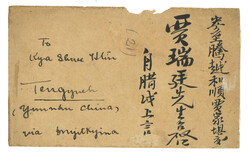 To
Kya Shwe Htin
Tengyueh
Yunnan China,
via Myitkyina
(21)
賈瑞廷先生台啓
自腊戌上言